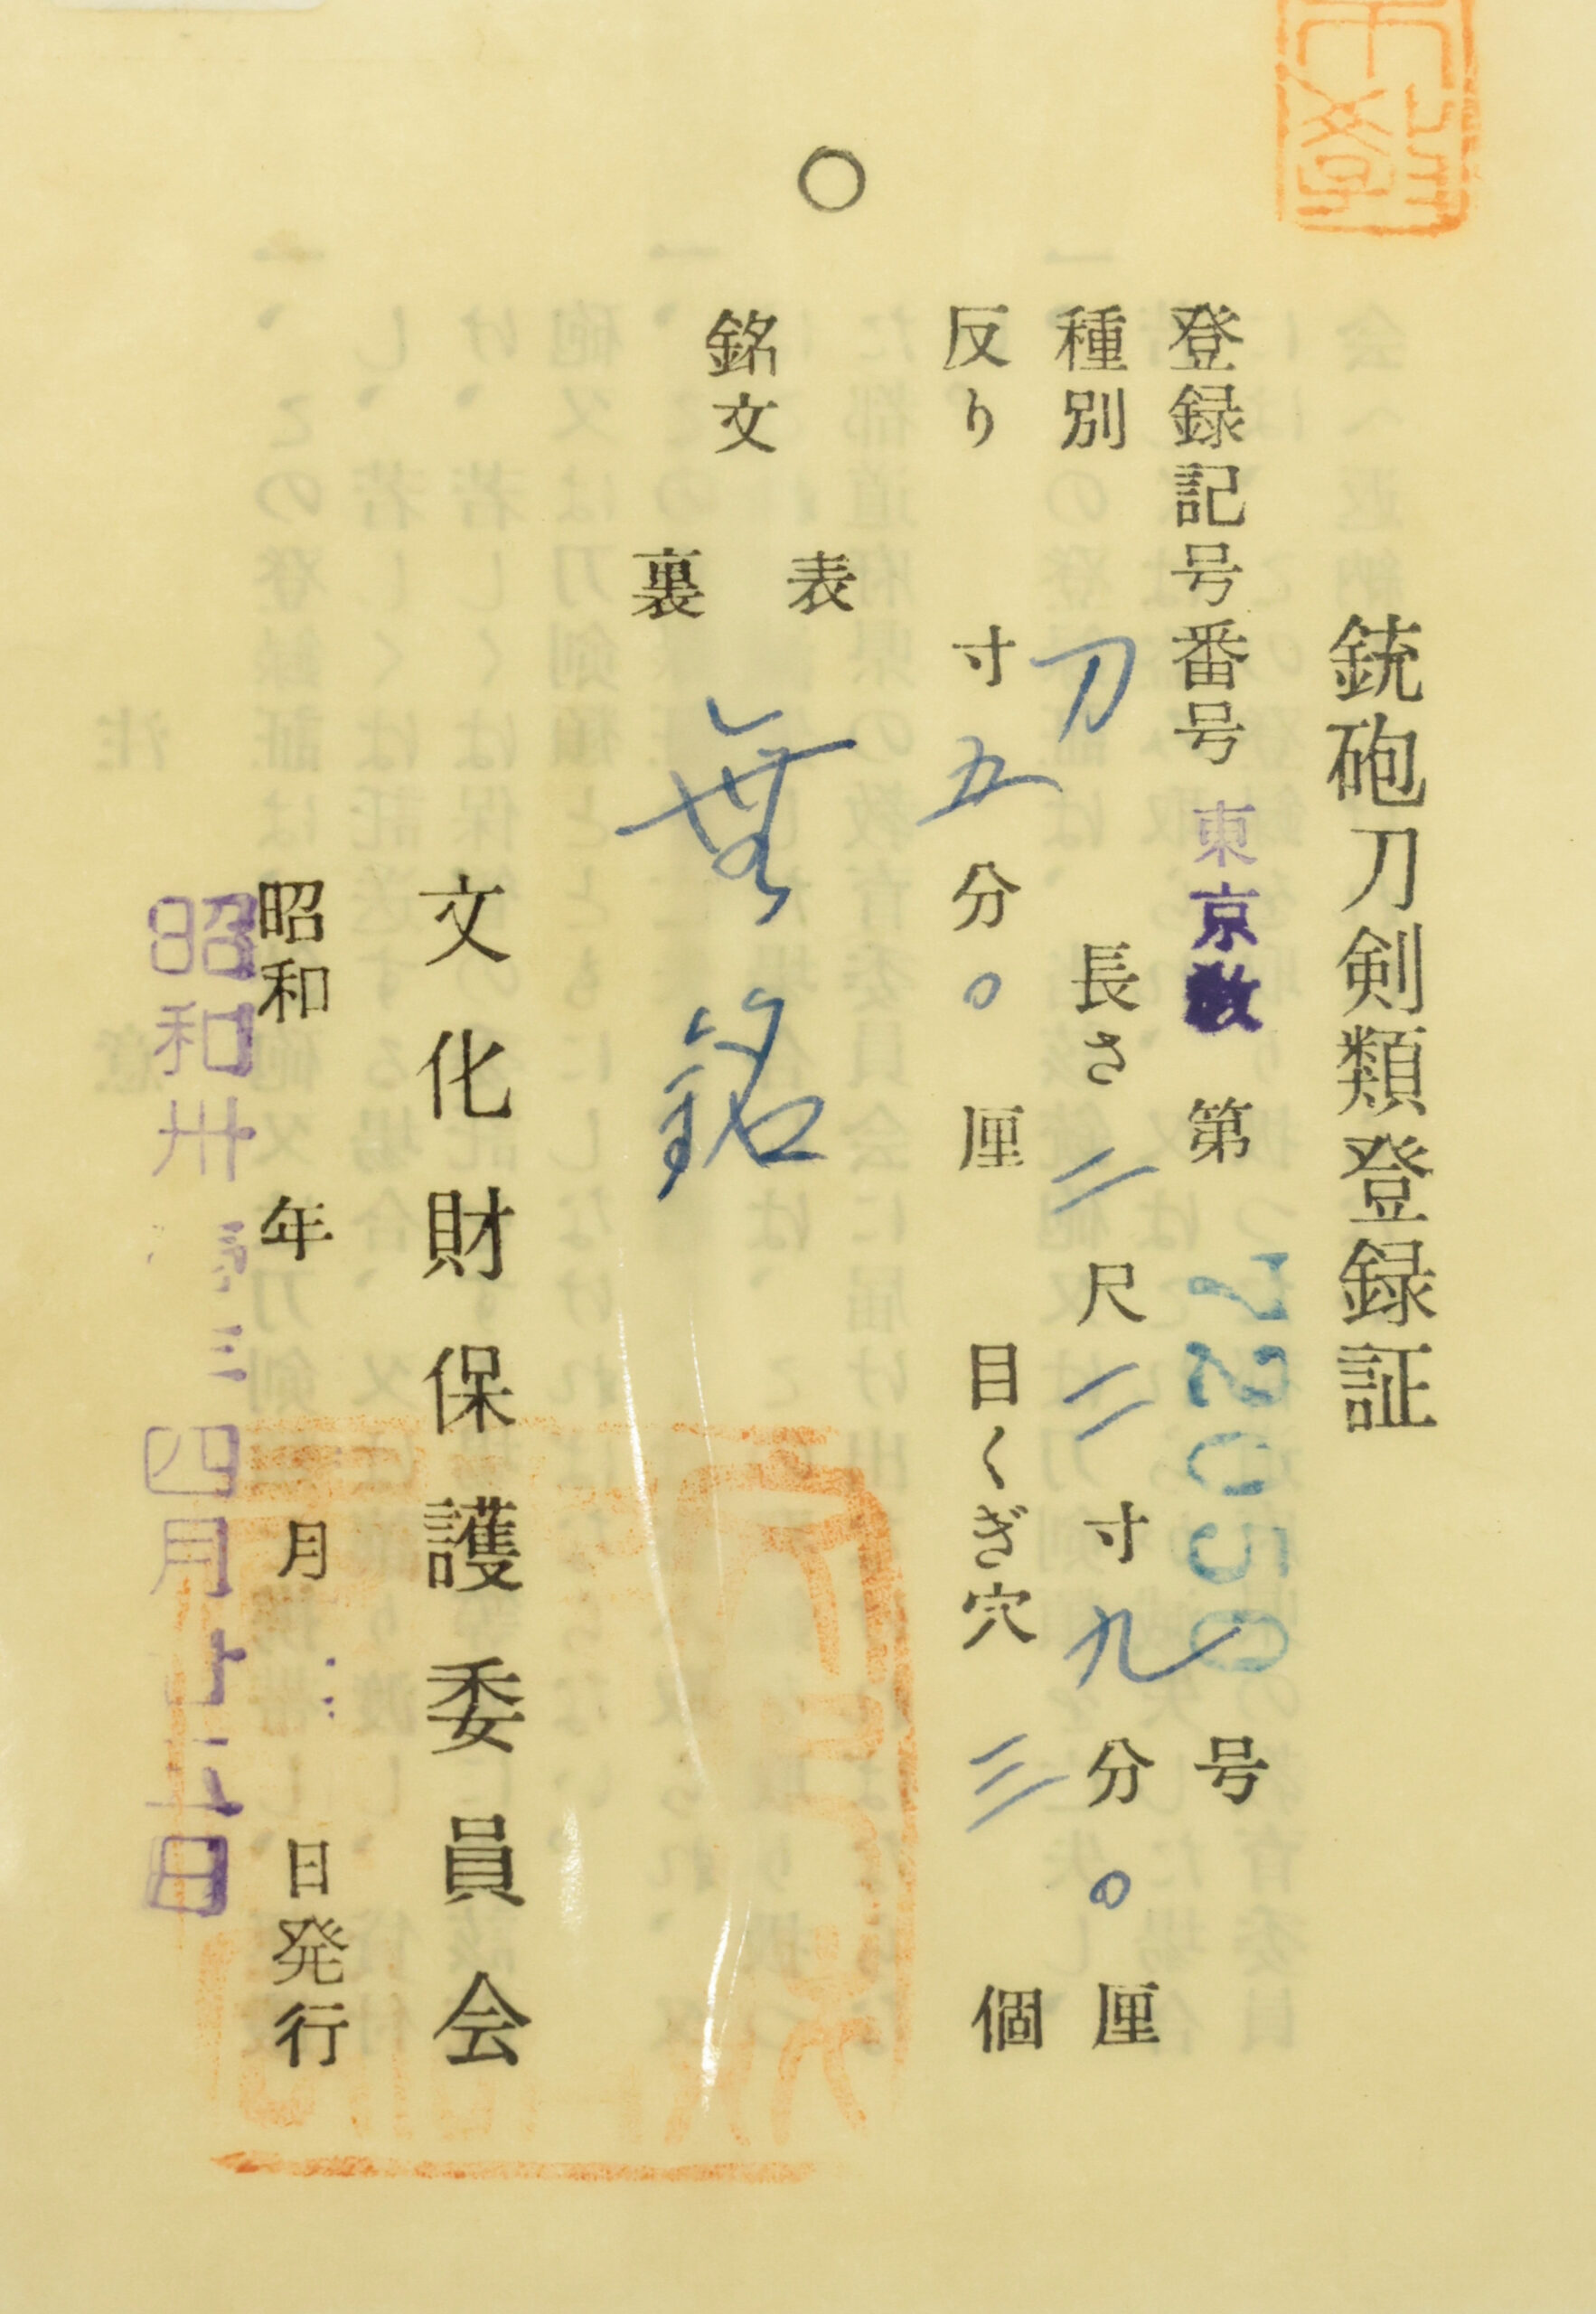 銃砲刀剣類登録証
登録記号番号 東京教 第 72050 号
種別 刀 長さ 二尺二寸九分〇厘
反り 寸五分〇厘 目くぎ穴 三個
銘文 表 無銘
裏
文化財保護委員会
昭和 年 月 日発行
昭和卅 四月 日